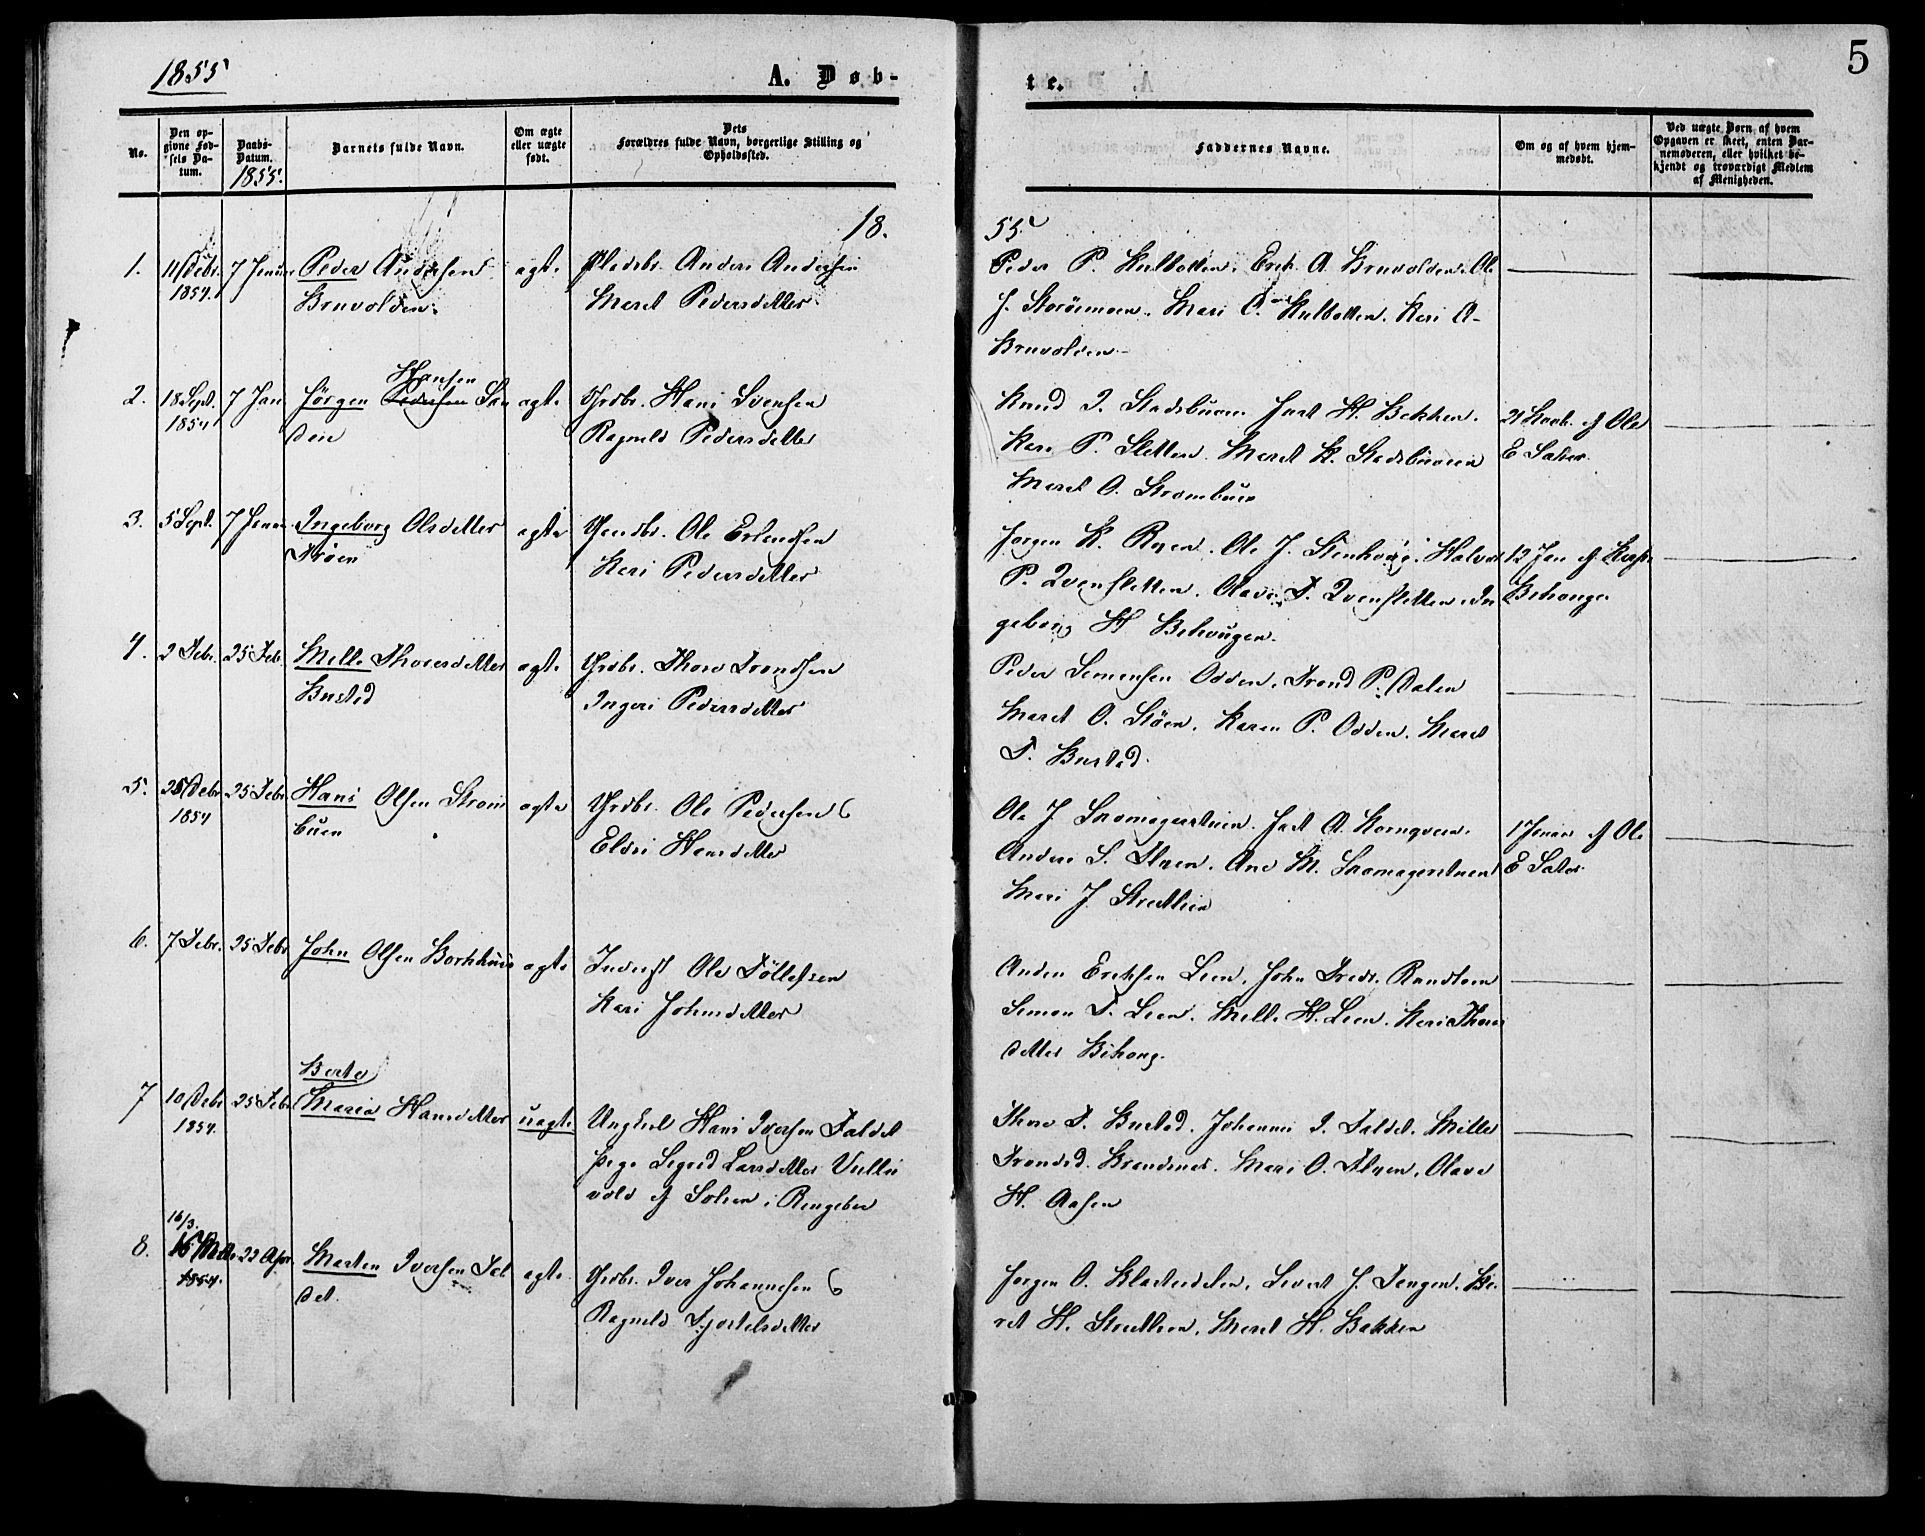 1855
A. Døb-
te.
5
No.
Den op-
givne Fød-
sels Da-
tum.
Daabs-
Datum.
1855.
Barnets fulde Navn.
Om ægte
eller uægte
født.
Dets
Forældres fulde Navn, borgerlige Stilling og
Opholdssted.
Faddernes Navne.
Om og af hvem hjem-
medøbt.
Ved uægte Børn af hvem
Opgaven er skeet, enten Bar-
nemoderen, eller hvilket be-
kjendt og troværdigt Medlem
af Menigheden.
18.
55
1.
11 Debr.
1854.
7 Januar
Peder Andersen
Bruvolden.
ægte
Pladsbr. Anders Andersen
Maret Pedersdatter
Peder P. Kulbotten. Erik A. Bruvolden. Ole
J. Storømoen. Mari O. Kulbotten. Kari A.
Bruvolden
2.
18 Sept.
1854
7 Jan
Hansen
Jörgen Pedersen San
døie
ægte
Grdbr. Hans Svensen
Ragnild Pedersdatter
Knud I. Stadsbuøien Jart H. Bakken.
Kari P. Sletten. Maret K. Stadsbuøien
Maret O. Strombuen
21 Novb. af Ole
E Sater.
3.
5 Sept.
7 Januar
Ingeborg Olsdatter
Trøen
ægte
Gaardbr. Ole Erlendsen
Kari Pedersdatter
Jorgen K. Roen. Ole J. Stenhoug. Halvor
P. Qvensletten. Olava T. Qvensletten. In
geborg H Behougen.
12 Jan af
Behouge
4.
2 Febr.
25 Feb.
Mille Thoresdatter
Bustad
ægte
Grdbr. Thore Trondsen
Ingeri Pedersdatter
Peder Simensen Odden. Trond P. Dalen
Maret O. Støen. Karen P. Odden. Maret
T. Bustad.
5.
Debr
1854
25 Febr
Hans Olsen Strom
buen
ægte
Grdbr. Ole Pedersen
Eldri Hansdatter
Ole J Skomagerstuen. Jart A. Kornqveen.
Anders S. Ilven. Ane M. Skomagerstuen
Mari J. Streitlien
1 Januar af Ole
E Sater
6.
7 Febr.
25 Febr
John Olsen Borkhus
ægte
Inderst Ole Tøllefsen
Kari Johnsdatter
Anders Eriksen Leen. John Fredr. Randtoen
Simon T. Leen. Mille H. Leen. Kari Thores
datter Bihoug.
7
10 Debr
1854.
25 Feb.
Berte
Maria Hansdatter
uægte
Ungkarl Hans Iversen Faldet
Pige Sigrid Larsdatter Vulle
vold af Solien i Ringebu
Thore T. Bustad. Johannes I. Faldet. Mille
Trondsd. Brandsnes. Mari O. Ilven. Olave
H. Aasen
8.
16/3.
1854.
22 Apr.
Marten Iversen Fal
det.
ægte
Grdbr. Iver Johannesen
Ragnild Kjostelsdatter
Jorgen O. Klasterdalen. Sivert J. Dengen. Be-
ret H. Streitlien. Maret H. Bakken